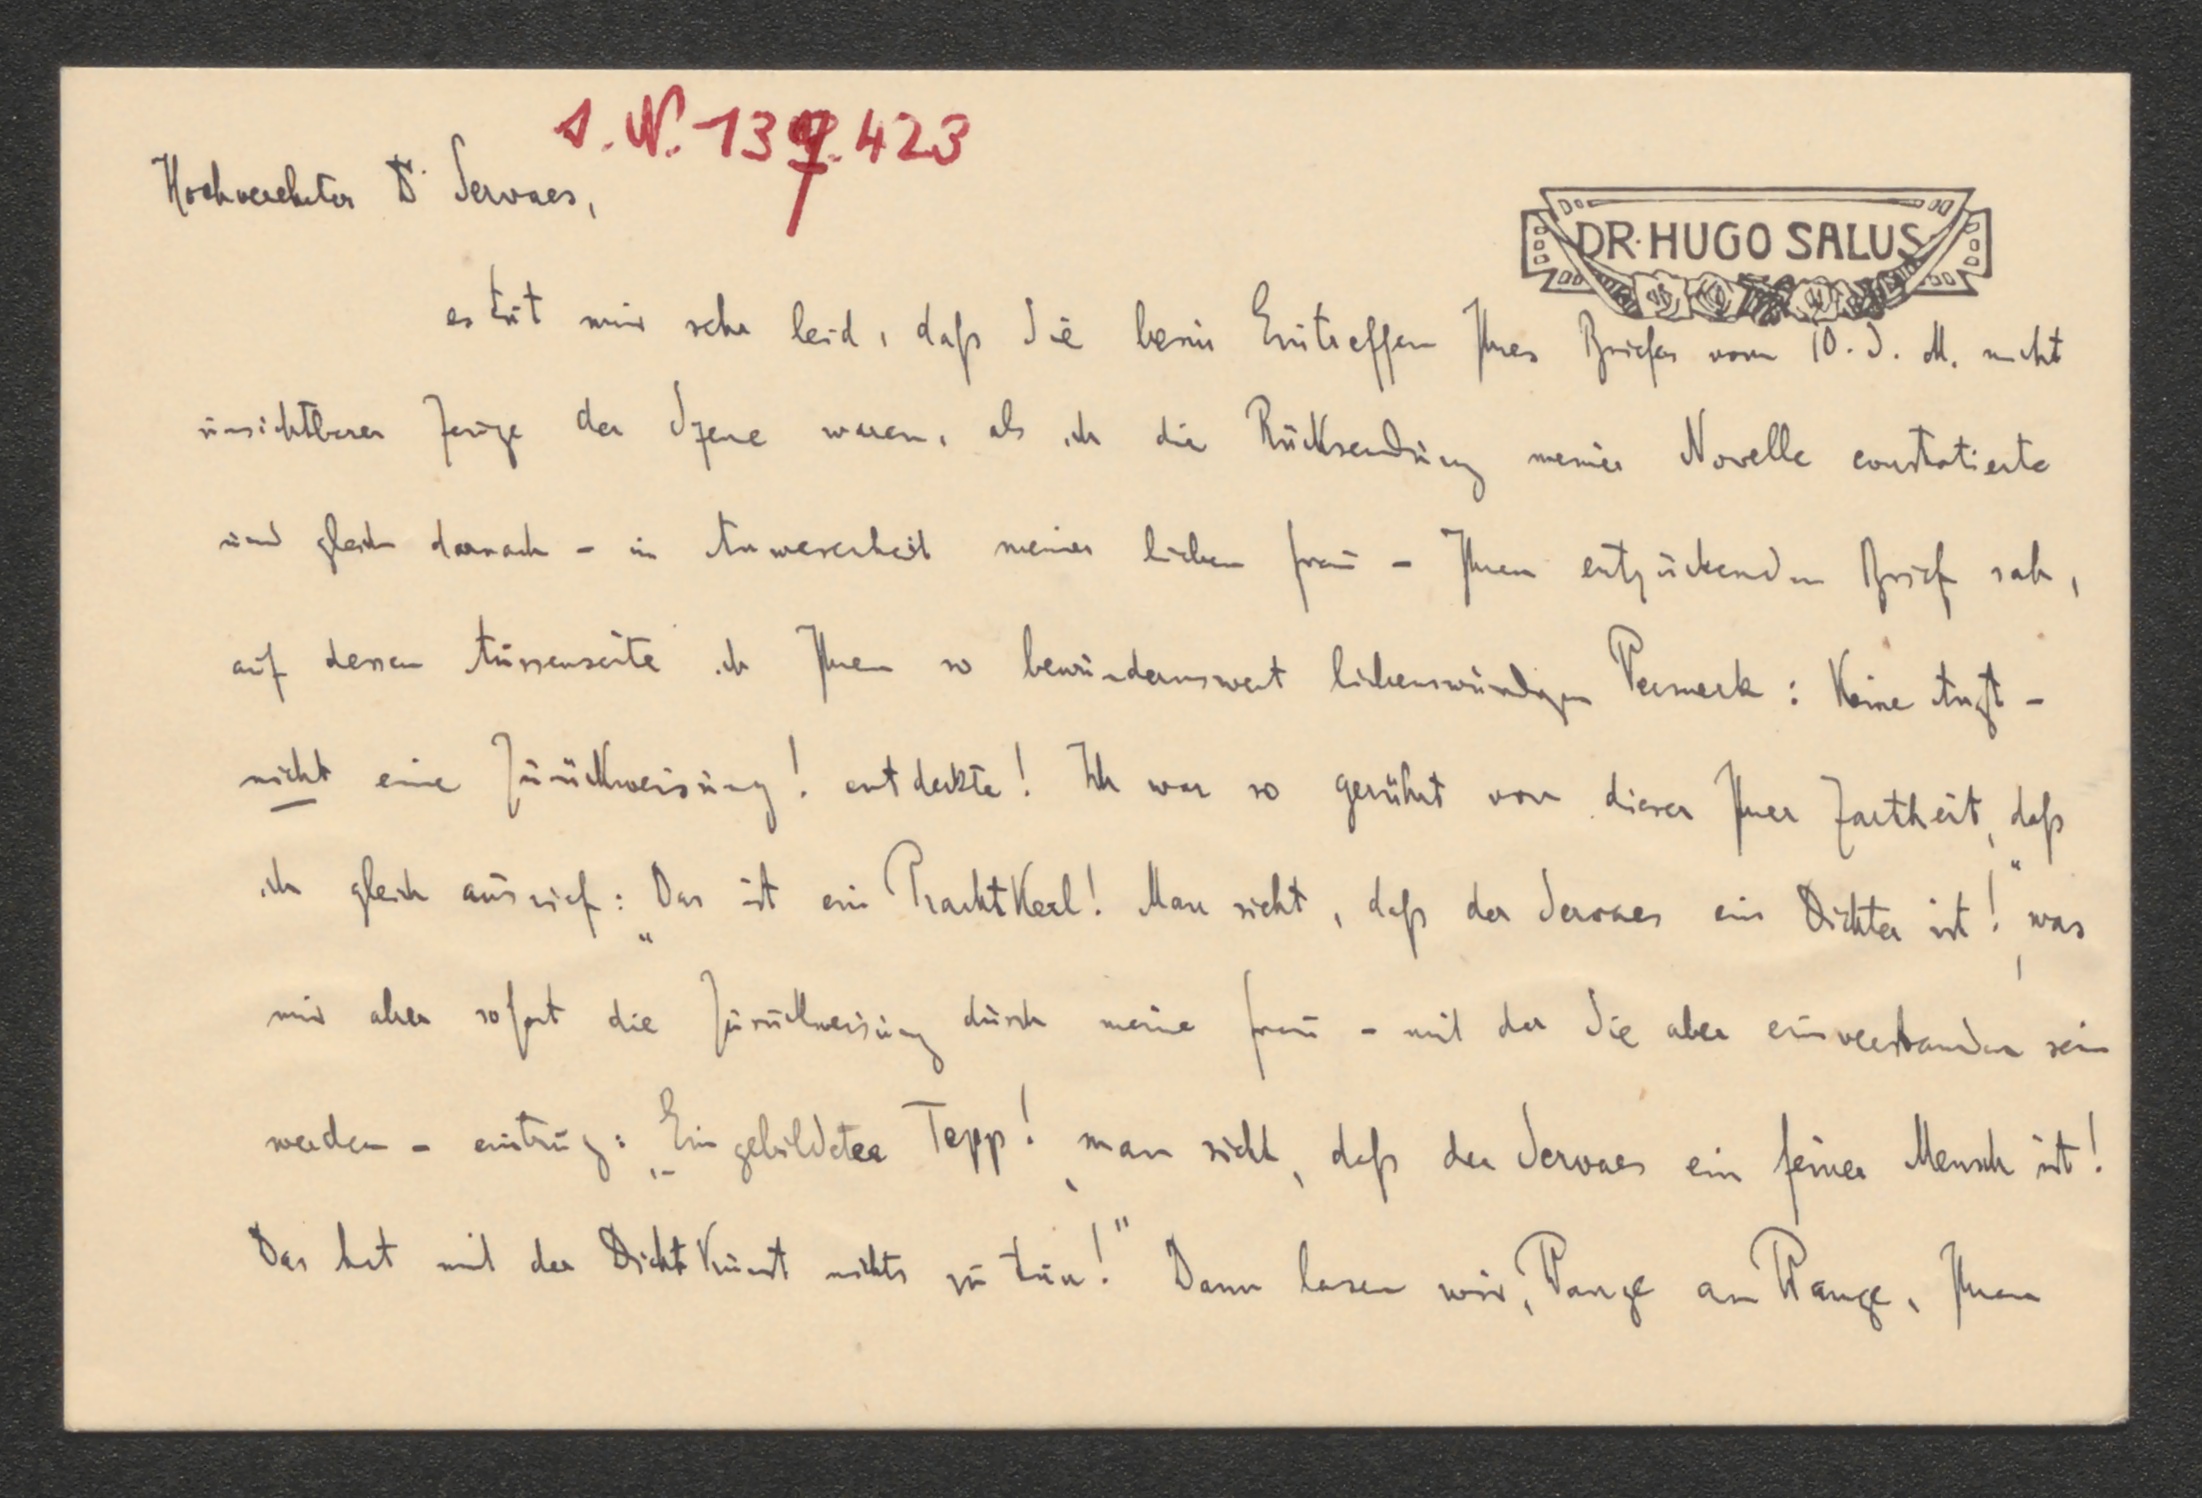 Hochverehrter Dr Servaes,
DR. HUGO SALUS
es tut mir sehr leid, daß Sie beim Eintreffen Ihres Briefes vom 10. d. M. nicht
unsichtbarer Zeuge der Szene waren, als ich die Rücksendung meiner Novelle constatierte
und gleich darnach - in Anwesenheit meiner lieben Frau - Ihren entzückenden Brief sah,
auf dessen Aussenseite ich Ihren so bewundernswert liebenswürdigen Vermerk: Keine Angst -
nicht eine Zurückweisung! entdeckte! Ich war so gerührt von dieser Ihrer Zartheit, daß
ich gleich ausrief: „Das ist ein Prachtkerl! Man sieht, daß der Servaes ein Dichter ist!", was
mir aber sofort die Zurückweisung durch meine Frau - mit der Sie aber einverstanden sein
werden - eintrug: „Eingebildeter Tepp! man sieht, daß der Servaes ein feiner Mensch ist!
Das hat mit der Dichtkunst nichts zu tun!" Dann lasen wir, Wange an Wange, Ihren